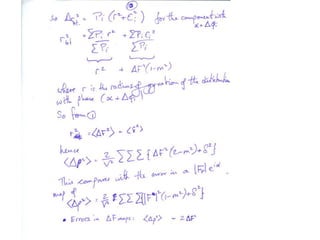 ③
So Δε² = Pᵢ (r² + cᵢ²) for the component with α+Δφᵢ
r² = ΣPᵢ r² / ΣPᵢ + ΣPᵢ cᵢ² / ΣPᵢ
r² + ΔF²(1-m²)
where r is the radius of gyration of the distribution
with phase (α+Δφ)
So from ①
r² = <ΔF²> - <δ²>
hence
<Δρ²> = 2/V² ΣΣΣ {ΔF²(2-m²) + δ²}
This compares with the error in a |F| e^iα
map of
<Δρ²> = 2/V² ΣΣΣ {|F|²(1-m²) + δ²}
• Errors in ΔF maps: <Δρ²> ~ 2ΔF